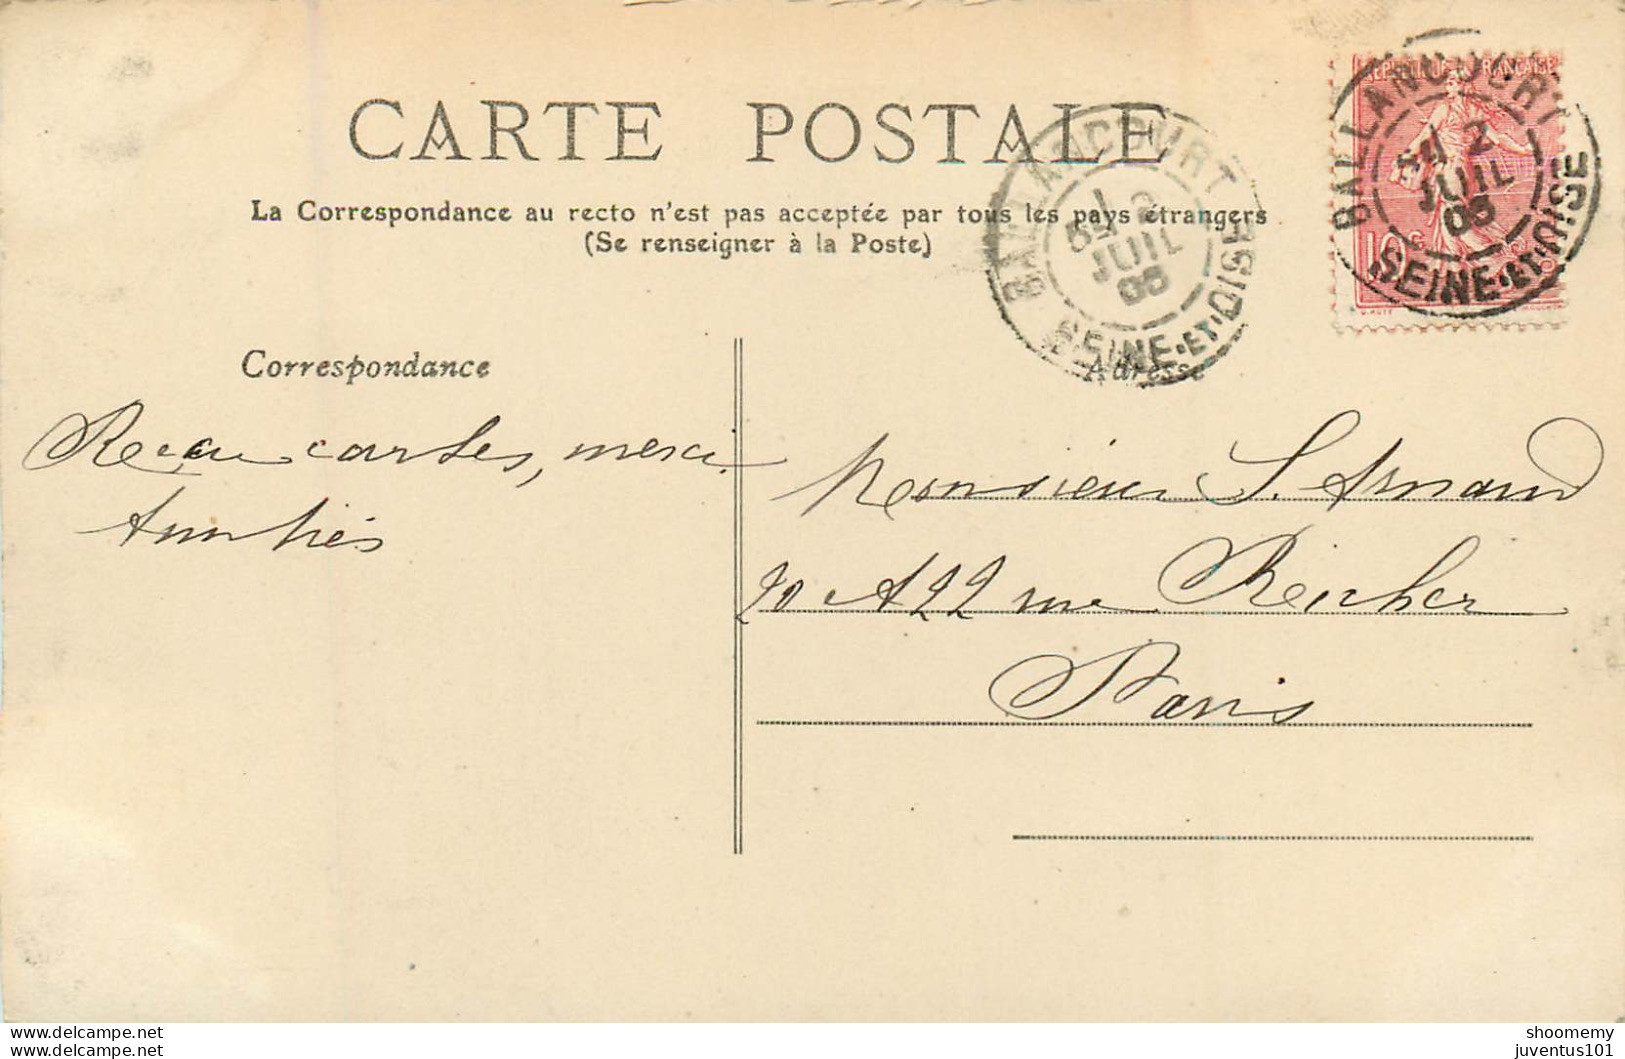 CARTE POSTALE
La Correspondance au recto n'est pas acceptée par tous les pays étrangers
(Se renseigner à la Poste)
REPUBLIQUE FRANÇAISE
10c
BALLANCOURT
2
JUIL
SEINE-ET-OISE
BALLANCOURT
2
JUIL
SEINE-ET-OISE
Correspondance
Reçu cartes, merci
Amitiés
Adresse
Monsieur S. Armand
20 et 22 rue Richer
Paris
shoomemy
juventus101
juventus101.delcampe.net